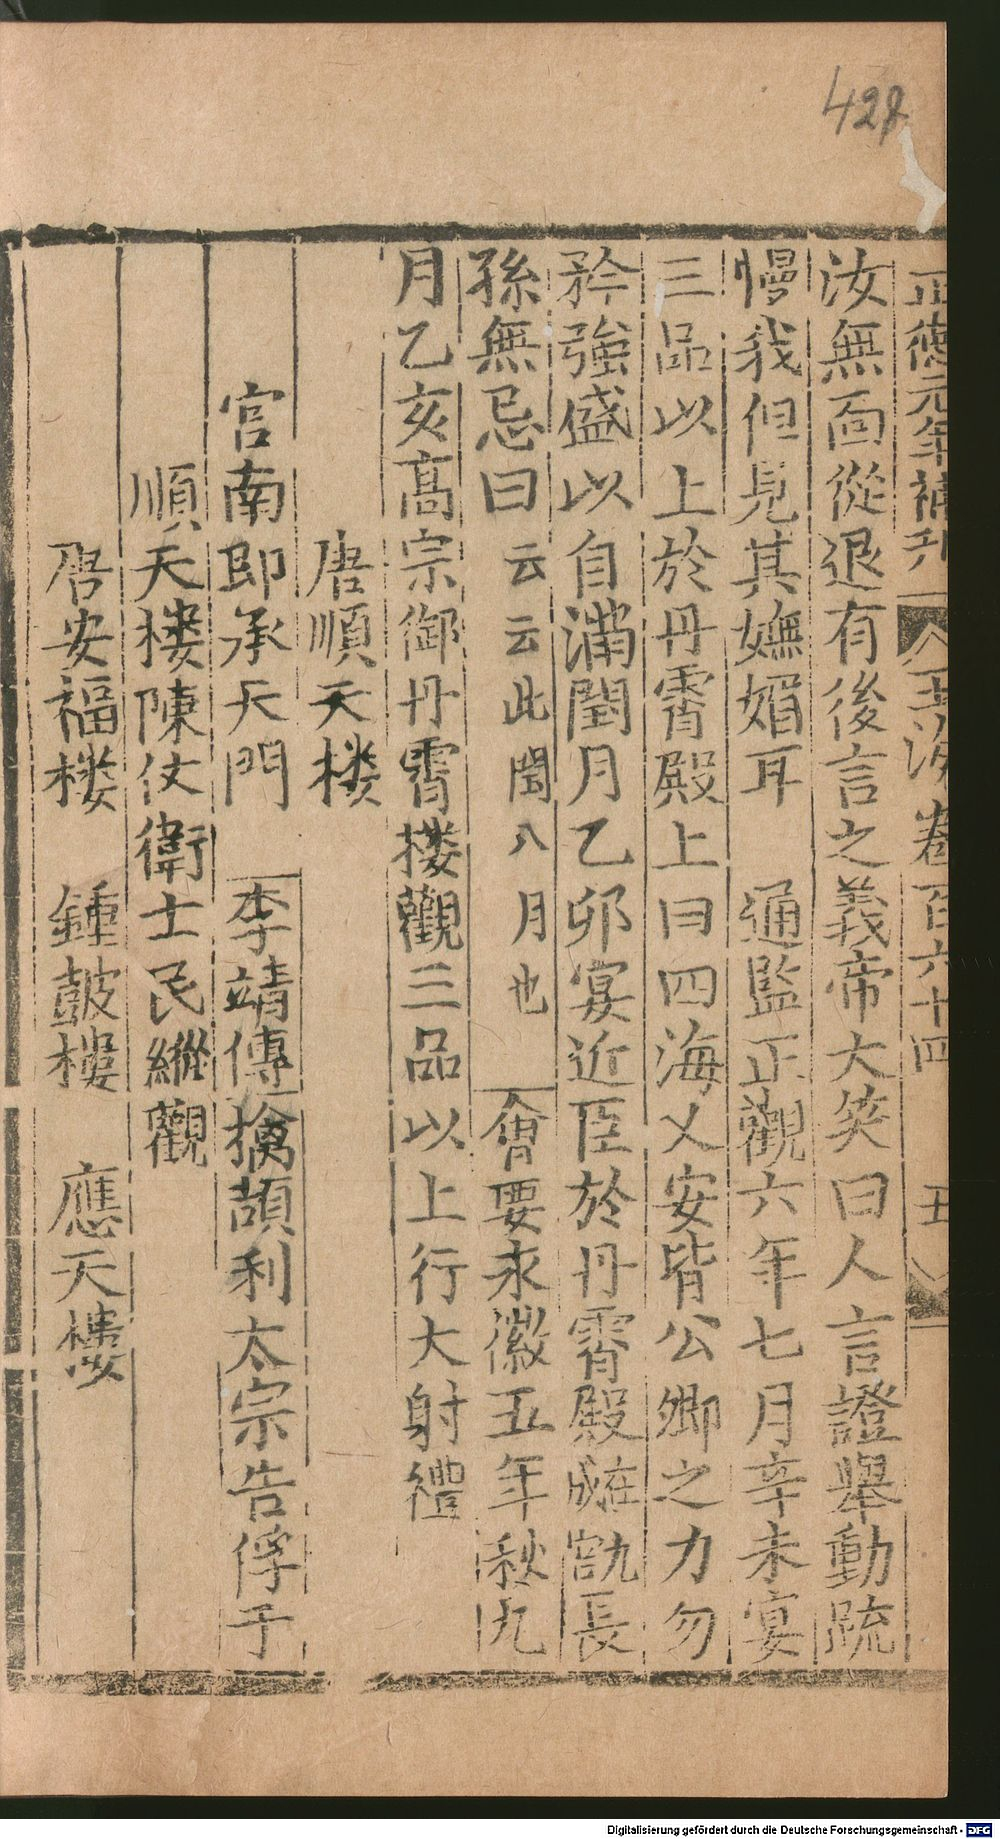 428
正德元年補刋 玉海卷百六十四 五
汝無面從退有後言之義帝大笑曰人言證舉動疏
慢我但見其嫵媚耳 通監正觀六年七月辛未宴
三品以上於丹霄殿上曰四海乂安皆公卿之力勿
矜強盛以自滿閏月乙卯宴近臣於丹霄殿 長
孫無忌曰云云此閏八月也 會要永徽五年秋九
月乙亥高宗御丹霄樓觀三品以上行大射禮
唐順天樓
宫南即承天門 李靖傳擒頡利太宗告俘于
順天樓陳仗衛士民縱觀
唐安福樓 鍾鼓樓 應天樓
Digitalisierung gefördert durch die Deutsche Forschungsgemeinschaft - DFG